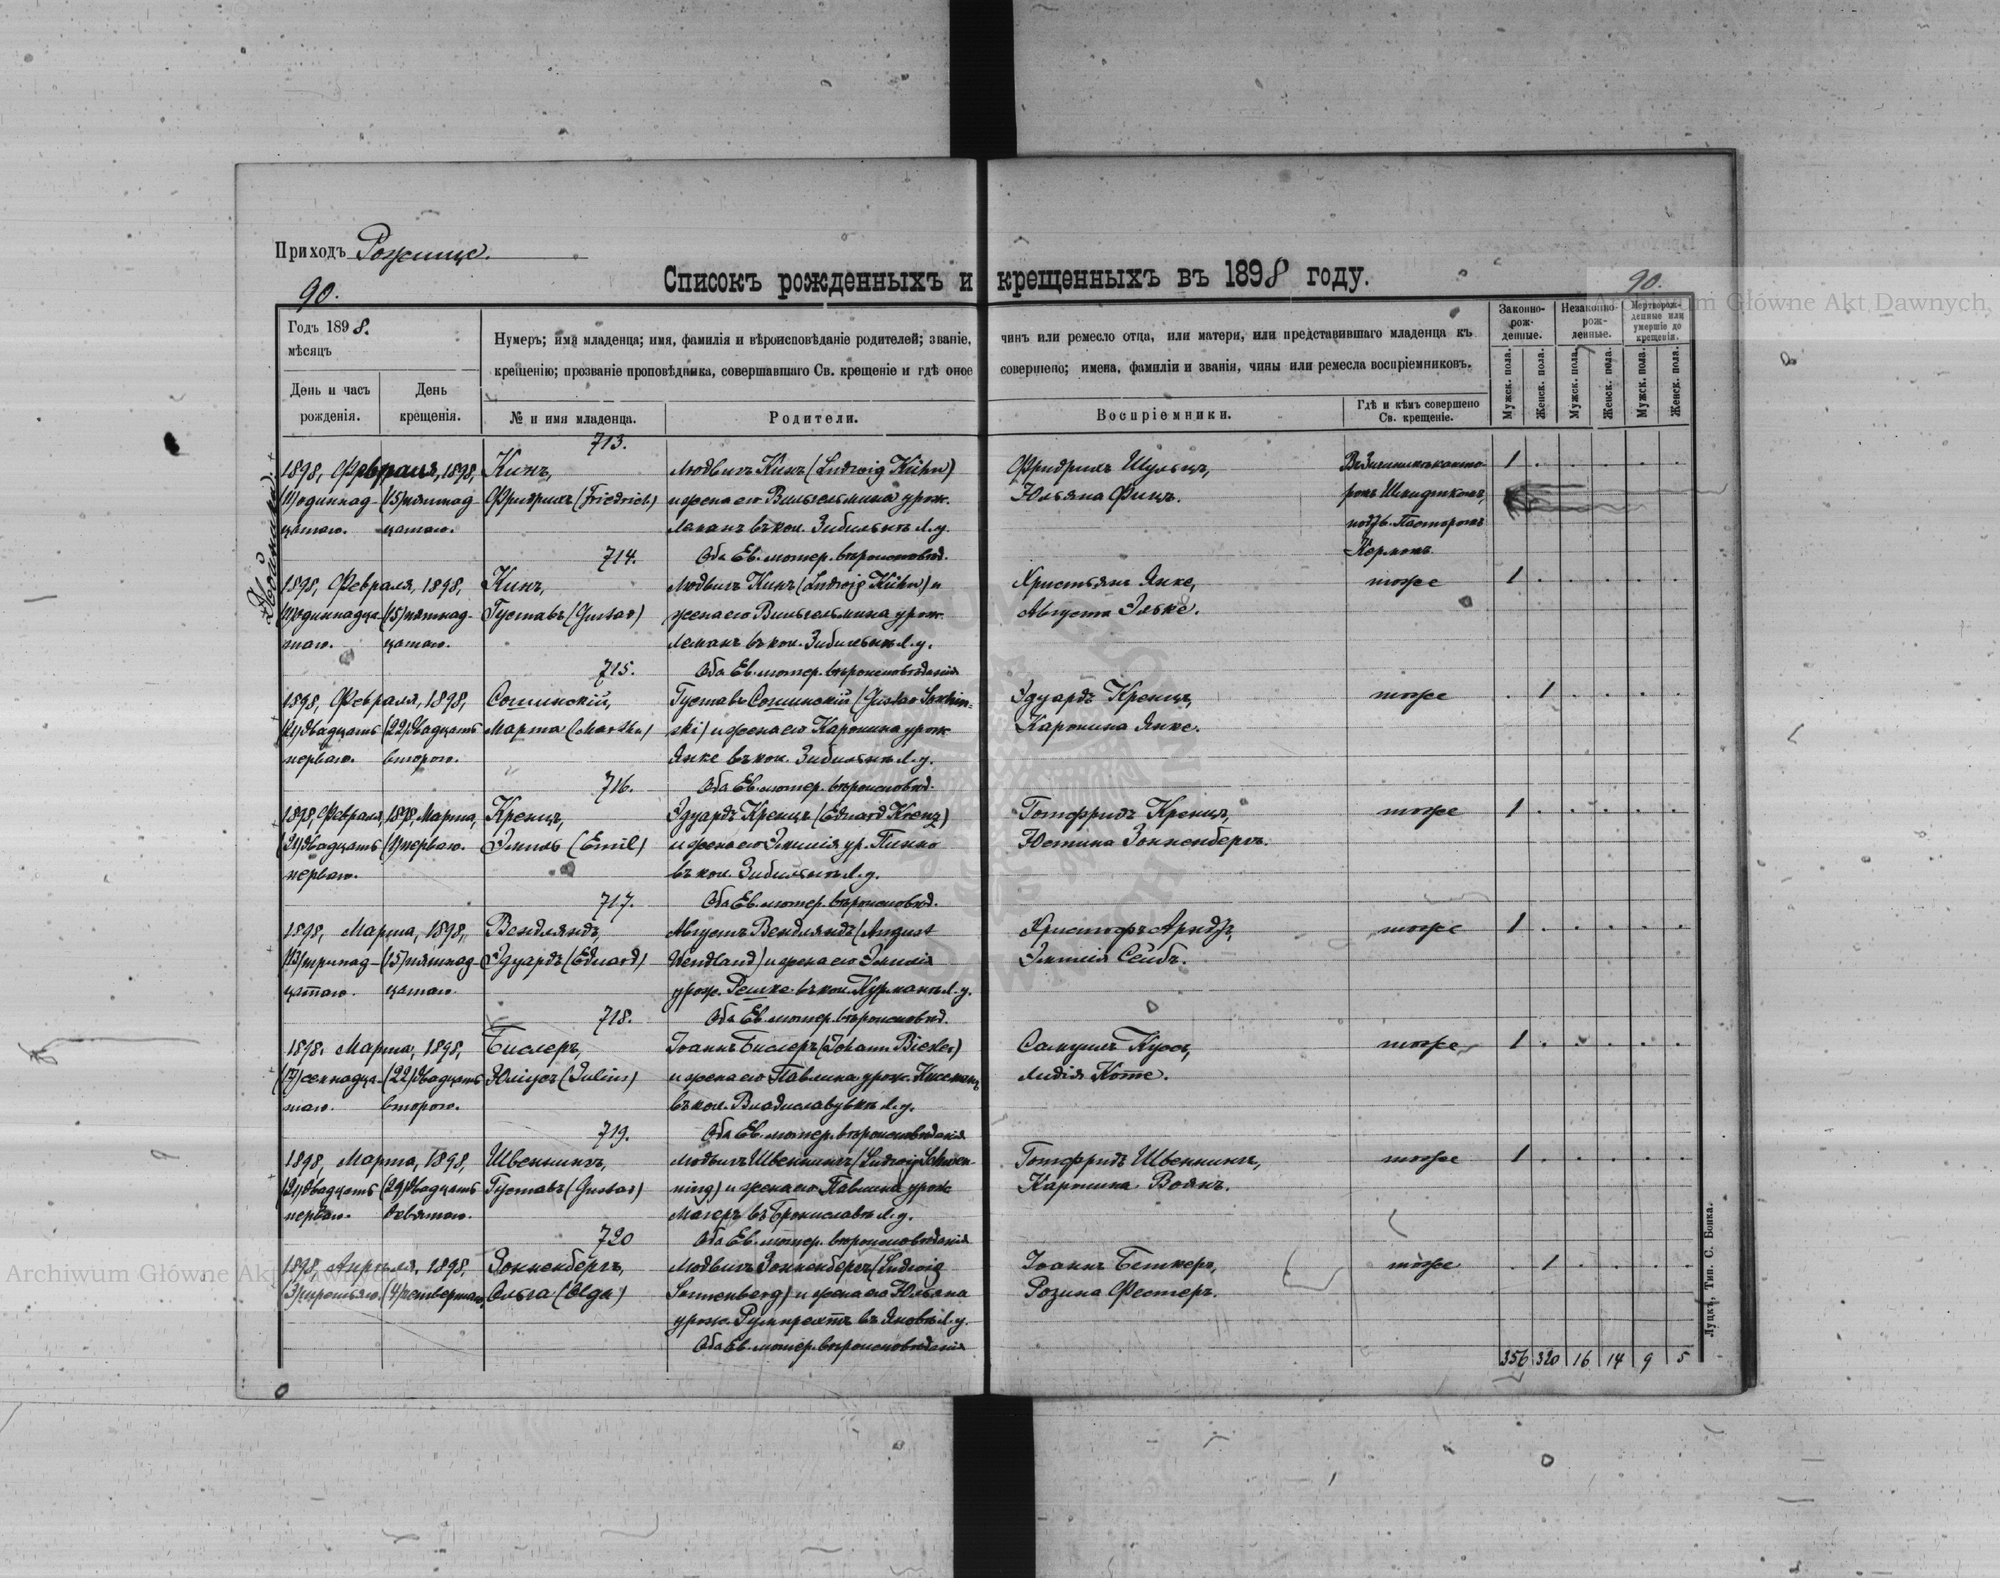 Приходъ Рожище.
90.
Списокъ рожденныхъ и крещенныхъ въ 1898 году.
90.
Archiwum Główne Akt Dawnych,
Годъ 1898.
мѣсяцъ
День и часъ рожденія.
День крещенія.
Нумеръ; имя младенца; имя, фамилія и вѣроисповѣданіе родителей; званіе, чинъ или ремесло отца, или матери, или представившаго младенца къ
крещенію; прозваніе проповѣдника, совершавшаго Св. крещеніе и гдѣ оное совершено; имена, фамиліи и званія, чины или ремесла воспріемниковъ.
№ и имя младенца.
Родители.
Воспріемники.
Гдѣ и кѣмъ совершено
Св. крещеніе.
Законно-
рож-
денные.
Незаконно-
рож-
денные.
Мертворож-
денные или
умершіе до
крещенія.
Мужск. пола.
Женск. пола.
Мужск. пола.
Женск. пола.
Мужск. пола.
Женск. пола.
713.
1898, Февраля, 1898, Кинъ, Людвигъ Кинъ (Ludwig Kühn) Фридрихъ Шульцъ, 1
(11) одиннад- (15) пятнад- Фридрихъ (Friedrich) и жена его Вильгельмина урож. Юльяна Финъ.
цатаго. цатаго. въ кол. Зибильнѣ Л. у. Пасторомъ
714. Оба Ев. лютер. вѣроисповѣд. Керномъ
1898, Февраля, 1898, Кинъ, Людвигъ Кинъ (Ludwig Kühn) и Христьянъ Янке, тоже 1
(11) одиннадца- (15) пятнад- Густавъ (Gustav) жена его Вильгельмина урож. Августа Эльке.
таго. цатаго. Леманъ въ кол. Зибильнѣ Л. у.
715. Оба Ев. лютер. вѣроисповѣданія
1898, Февраля, 1898, Сошинскій, Густавъ Сошинскій (Gustav Soschin- Эдуардъ Кренцъ, тоже 1
(21) двадцать (22) двадцать Марта (Martha) ski) и жена его Каролина урож. Каролина Янке.
перваго. второго. Янке въ кол. Зибильнѣ Л. у.
716. Оба Ев. лютер. вѣроисповѣд.
1898, Февраля, 1898, Марта, Кренцъ, Эдуардъ Кренцъ (Eduard Krenz) Готфридъ Кренцъ, тоже 1
(21) двадцать (1) перваго. Эмиль (Emil) и жена его Эмилія ур. Пинно Юстина Зонненбергъ.
перваго. въ кол. Зибильнѣ Л. у.
717. Оба Ев. лютер. вѣроисповѣд.
1898, Марта, 1898, Вендляндъ, Августъ Вендляндъ (August Христофъ Арндъ, тоже 1
(13) тринад- (15) пятнад- Эдуардъ (Eduard) Wendland) и жена его Эмилія Эмилія Сейбъ.
цатаго. цатаго. урож. Решке въ кол. Курманъ Л. у.
718. Оба Ев. лютер. вѣроисповѣд.
1898, Марта, 1898, Бислеръ, Іоаннъ Бислеръ (Johann Biesler) Самуилъ Куссъ, тоже, 1
(17) семнадца- (22) двадцать Юліусъ (Julius) и жена его Павлина урож. Лидія Котте.
таго. второго. въ кол. Владиславувкѣ Л. у.
719. Оба Ев. лютер. вѣроисповѣданія
1898, Марта, 1898, Швеннингъ, Людвигъ Швеннингъ (Ludwig Schwen- Готфридъ Швеннингъ, тоже 1
(21) двадцать (29) двадцать Густавъ (Gustav) ning) и жена его Павлина урож. Каролина Воянъ.
перваго. девятаго. Магеръ въ Брониславкѣ Л. у.
720 Оба Ев. лютер. вѣроисповѣданія
1898, Апрѣля, 1898, Зонненбергъ, Людвигъ Зонненбергъ (Ludwig Іоаннъ Беткеръ, тоже 1
(3) третьяго. (4) четвертаго. Ольга (Olga) Sonnenberg) и жена его Юльяна Розина Фестеръ.
урож. Румпрехтъ въ Яновкѣ Л. у.
Оба Ев. лютер. вѣроисповѣданія
356 320 16 14 9 5
Двойники
Луцкъ, Тип. С. Бонка.
Archiwum Główne Akt Dawnych